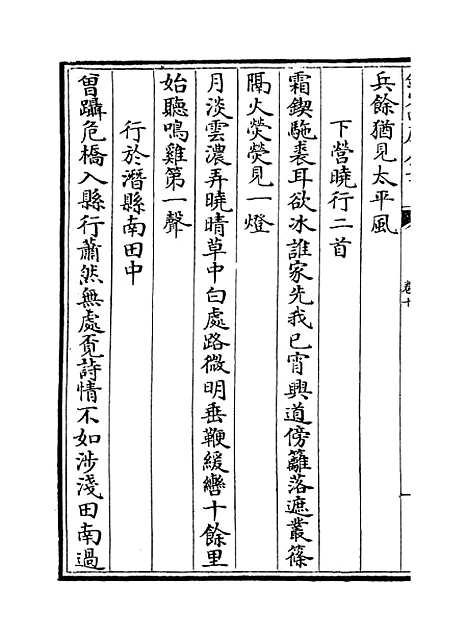 兵餘猶見太平風
下營曉行二首
霜鍥駞裘耳欲冰誰家先我已宵興道傍籬落遮叢篠
隔火熒熒見一燈
月淡雲濃弄曉晴草中白處路微明垂鞭緩轡十餘里
始聽鳴雞第一聲
行於潛縣南田中
曾躡危橋入縣行蕭然無處覓詩情不如涉淺田南過
卷十